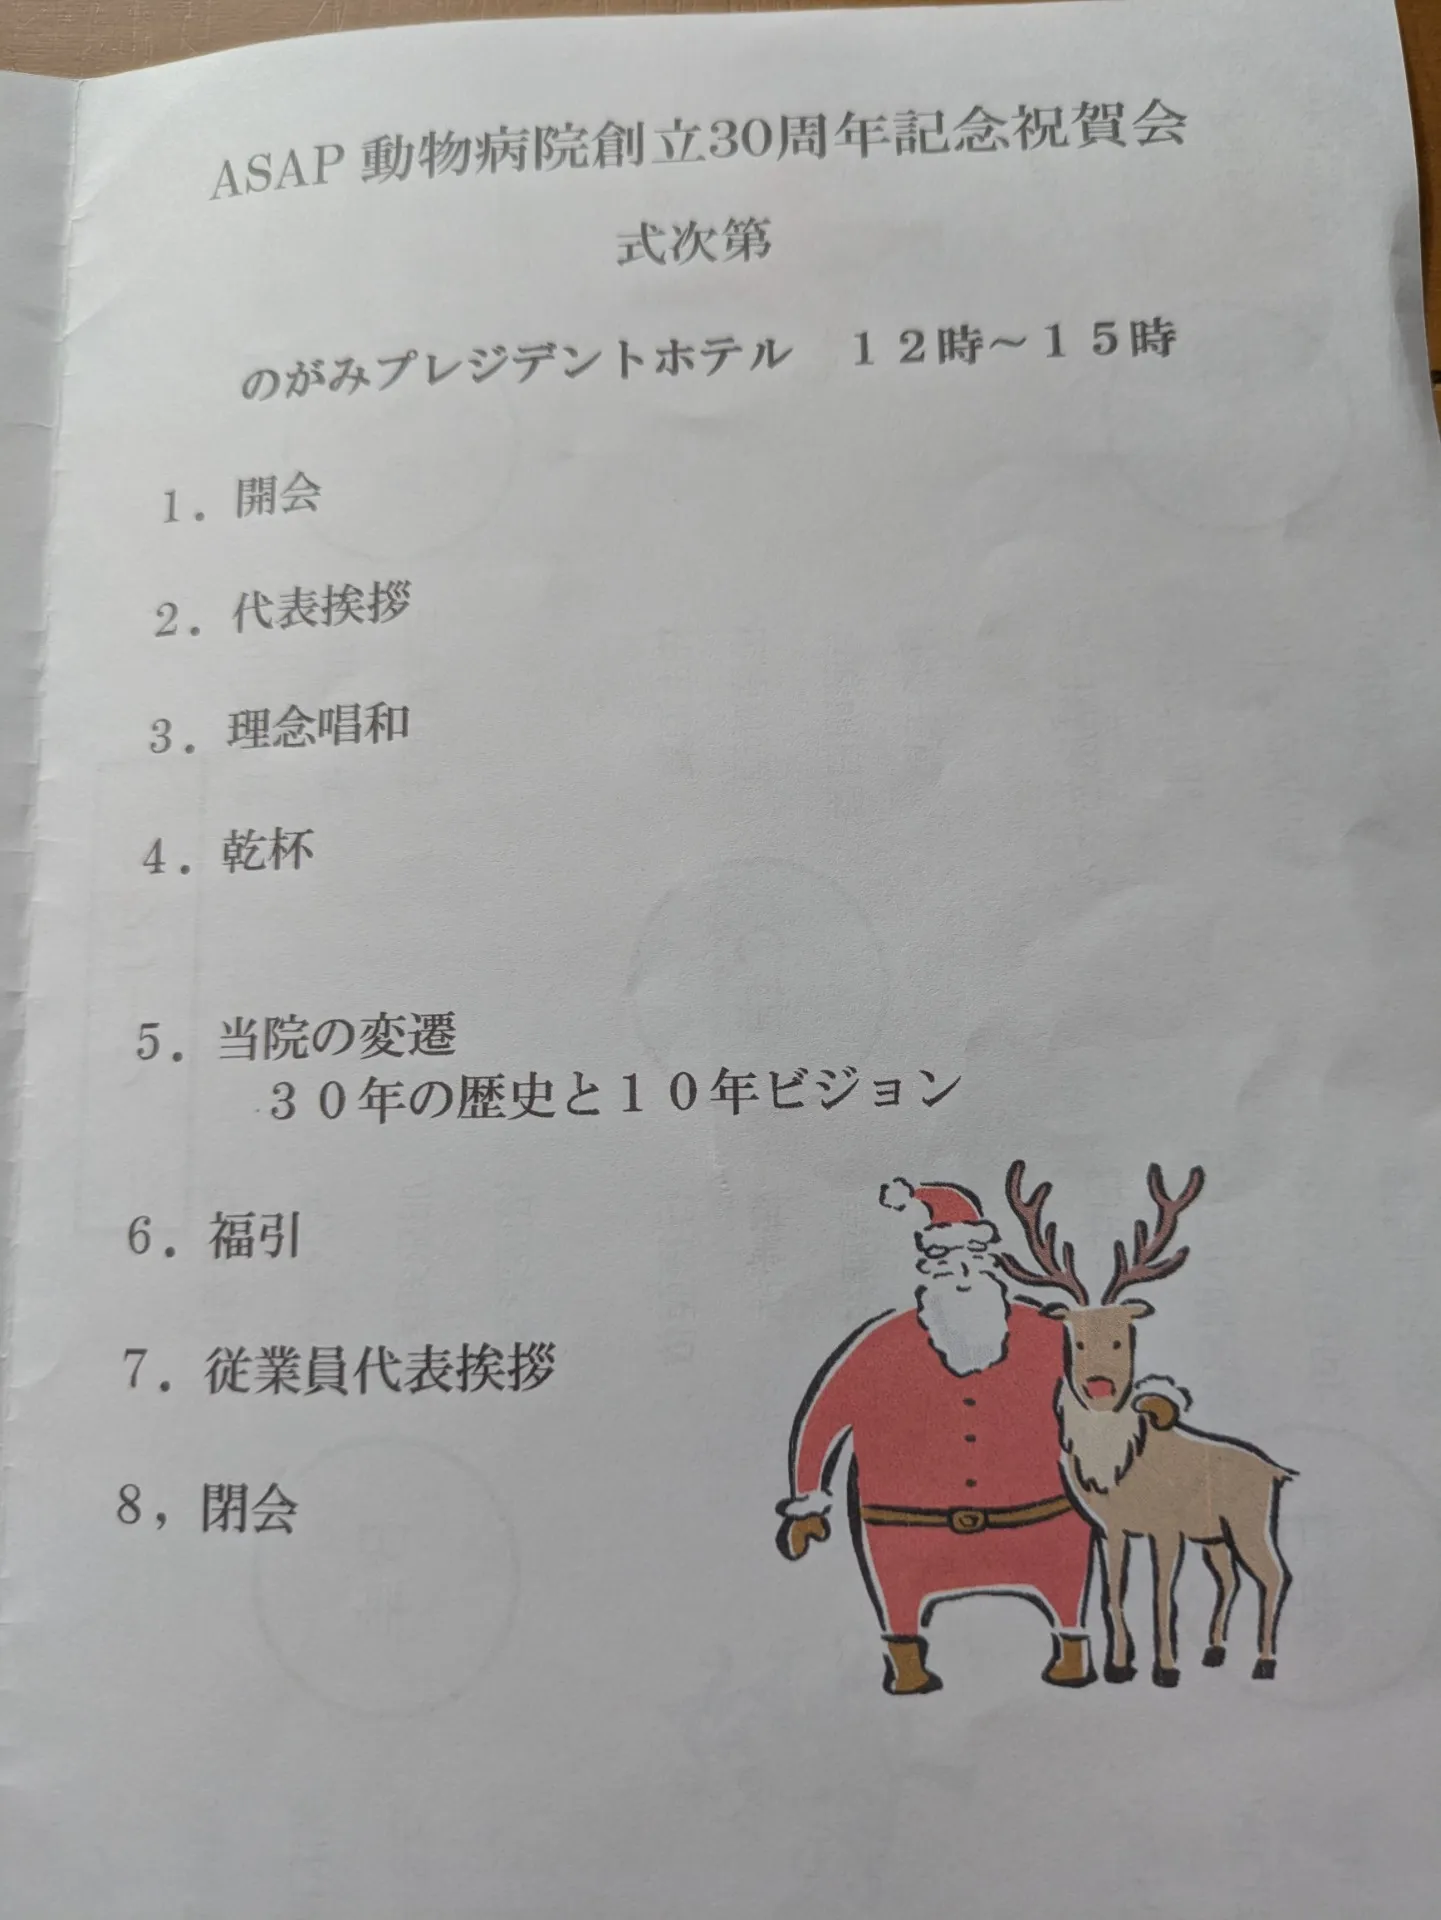 ASAP 動物病院創立30周年記念祝賀会
式次第
のがみプレジデントホテル　１２時～１５時
1．開会
2．代表挨拶
3．理念唱和
4．乾杯
5．当院の変遷
３０年の歴史と１０年ビジョン
6．福引
7．従業員代表挨拶
8，閉会